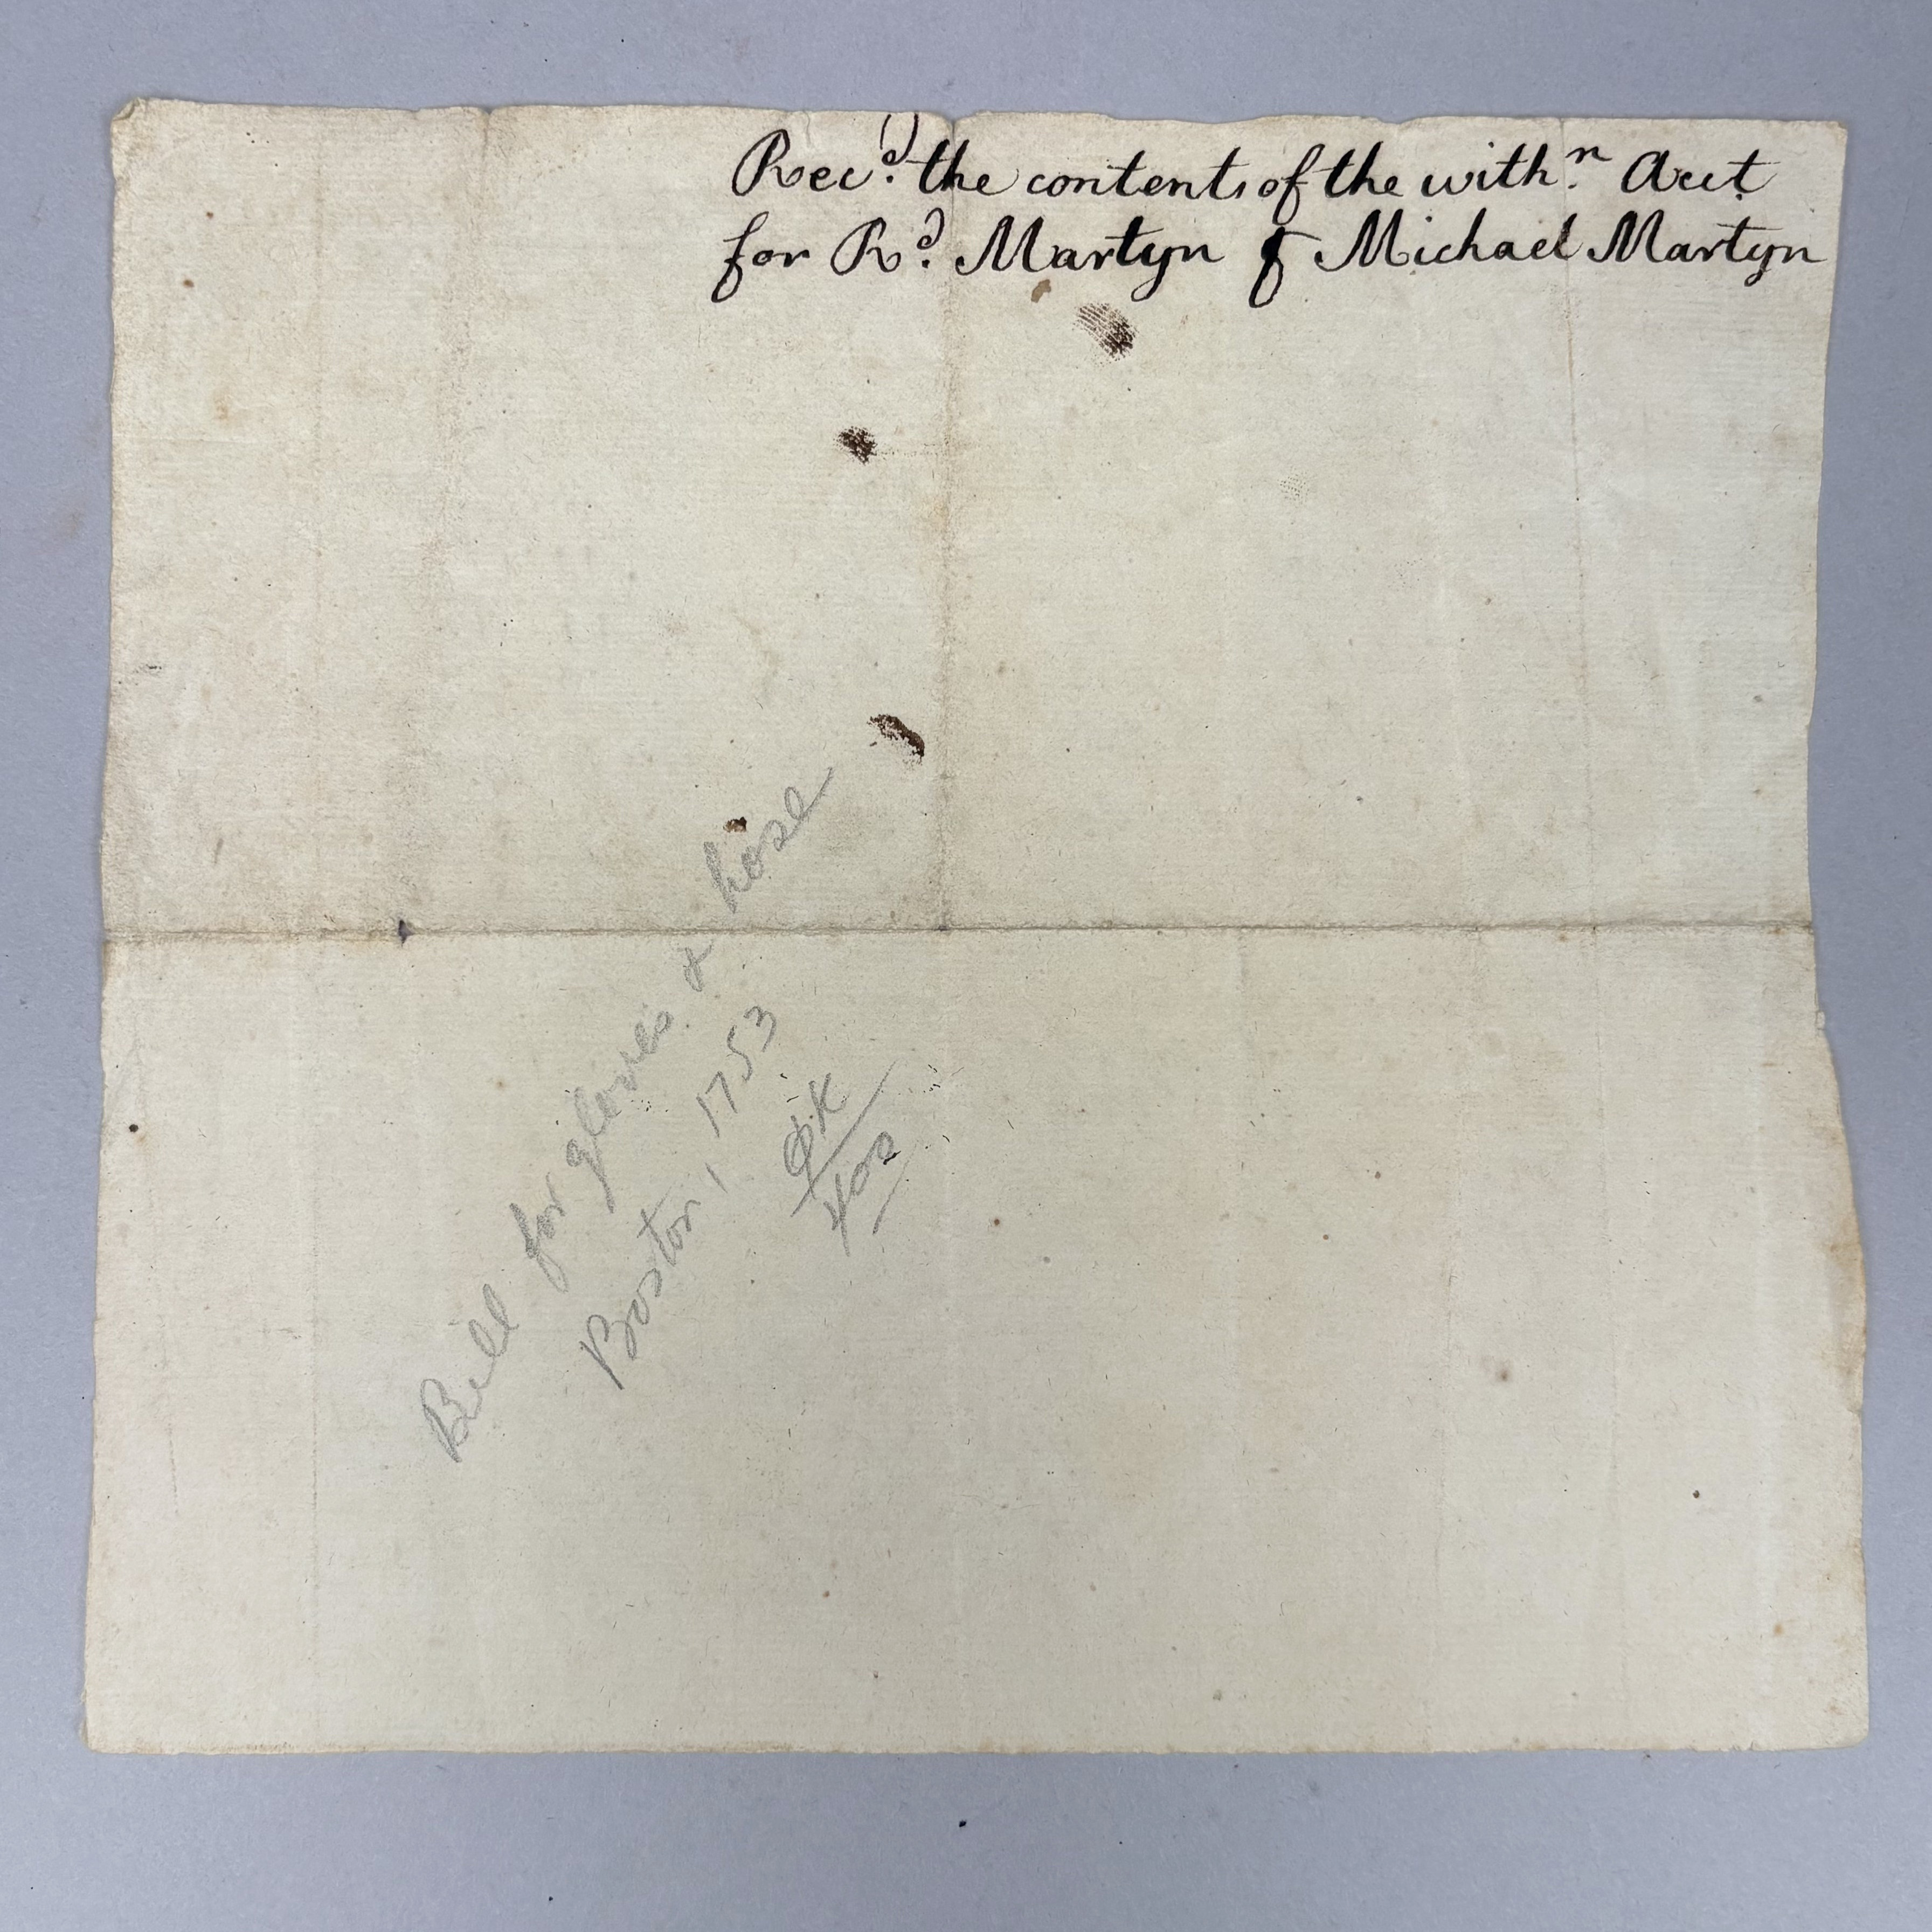 Rec.d the contents of the with.n Acct
for R.d Martyn ⅌ Michael Martyn
Bill for gloves & hose
Boston, 1753